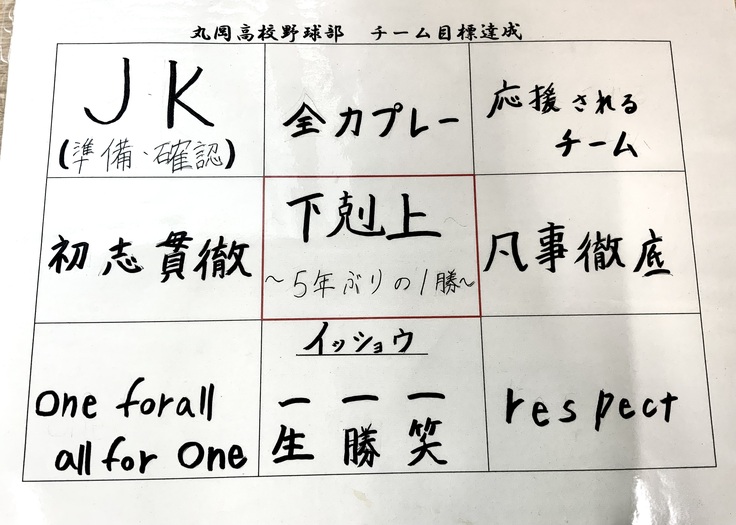 丸岡高校野球部 チーム目標達成
JK
(準備・確認)
全力プレー
応援される
チーム
初志貫徹
下剋上
～5年ぶりの1勝～
凡事徹底
One forall
all for One
イッショウ
一 一 一
生 勝 笑
respect